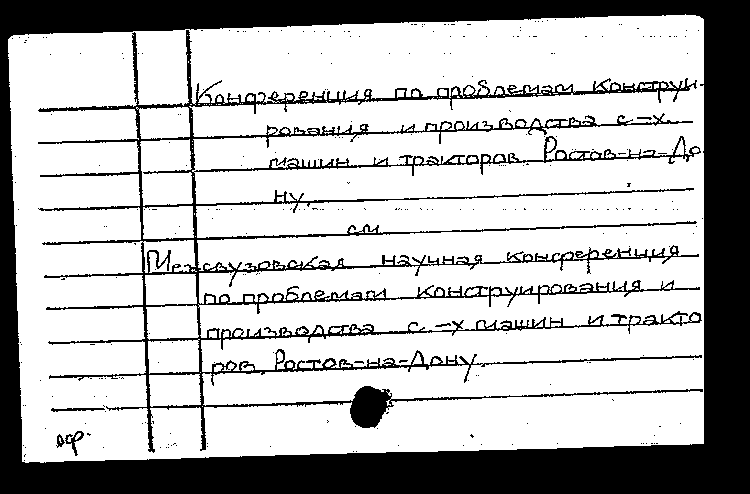 Конференция по проблемам конструи-
рования и производства с.-х.
машин и тракторов. Ростов-на-До
ну.
см.
Межвузовская научная конференция
по проблемам конструирования и
производства с.-х машин и тракто
ров. Ростов-на-Дону.